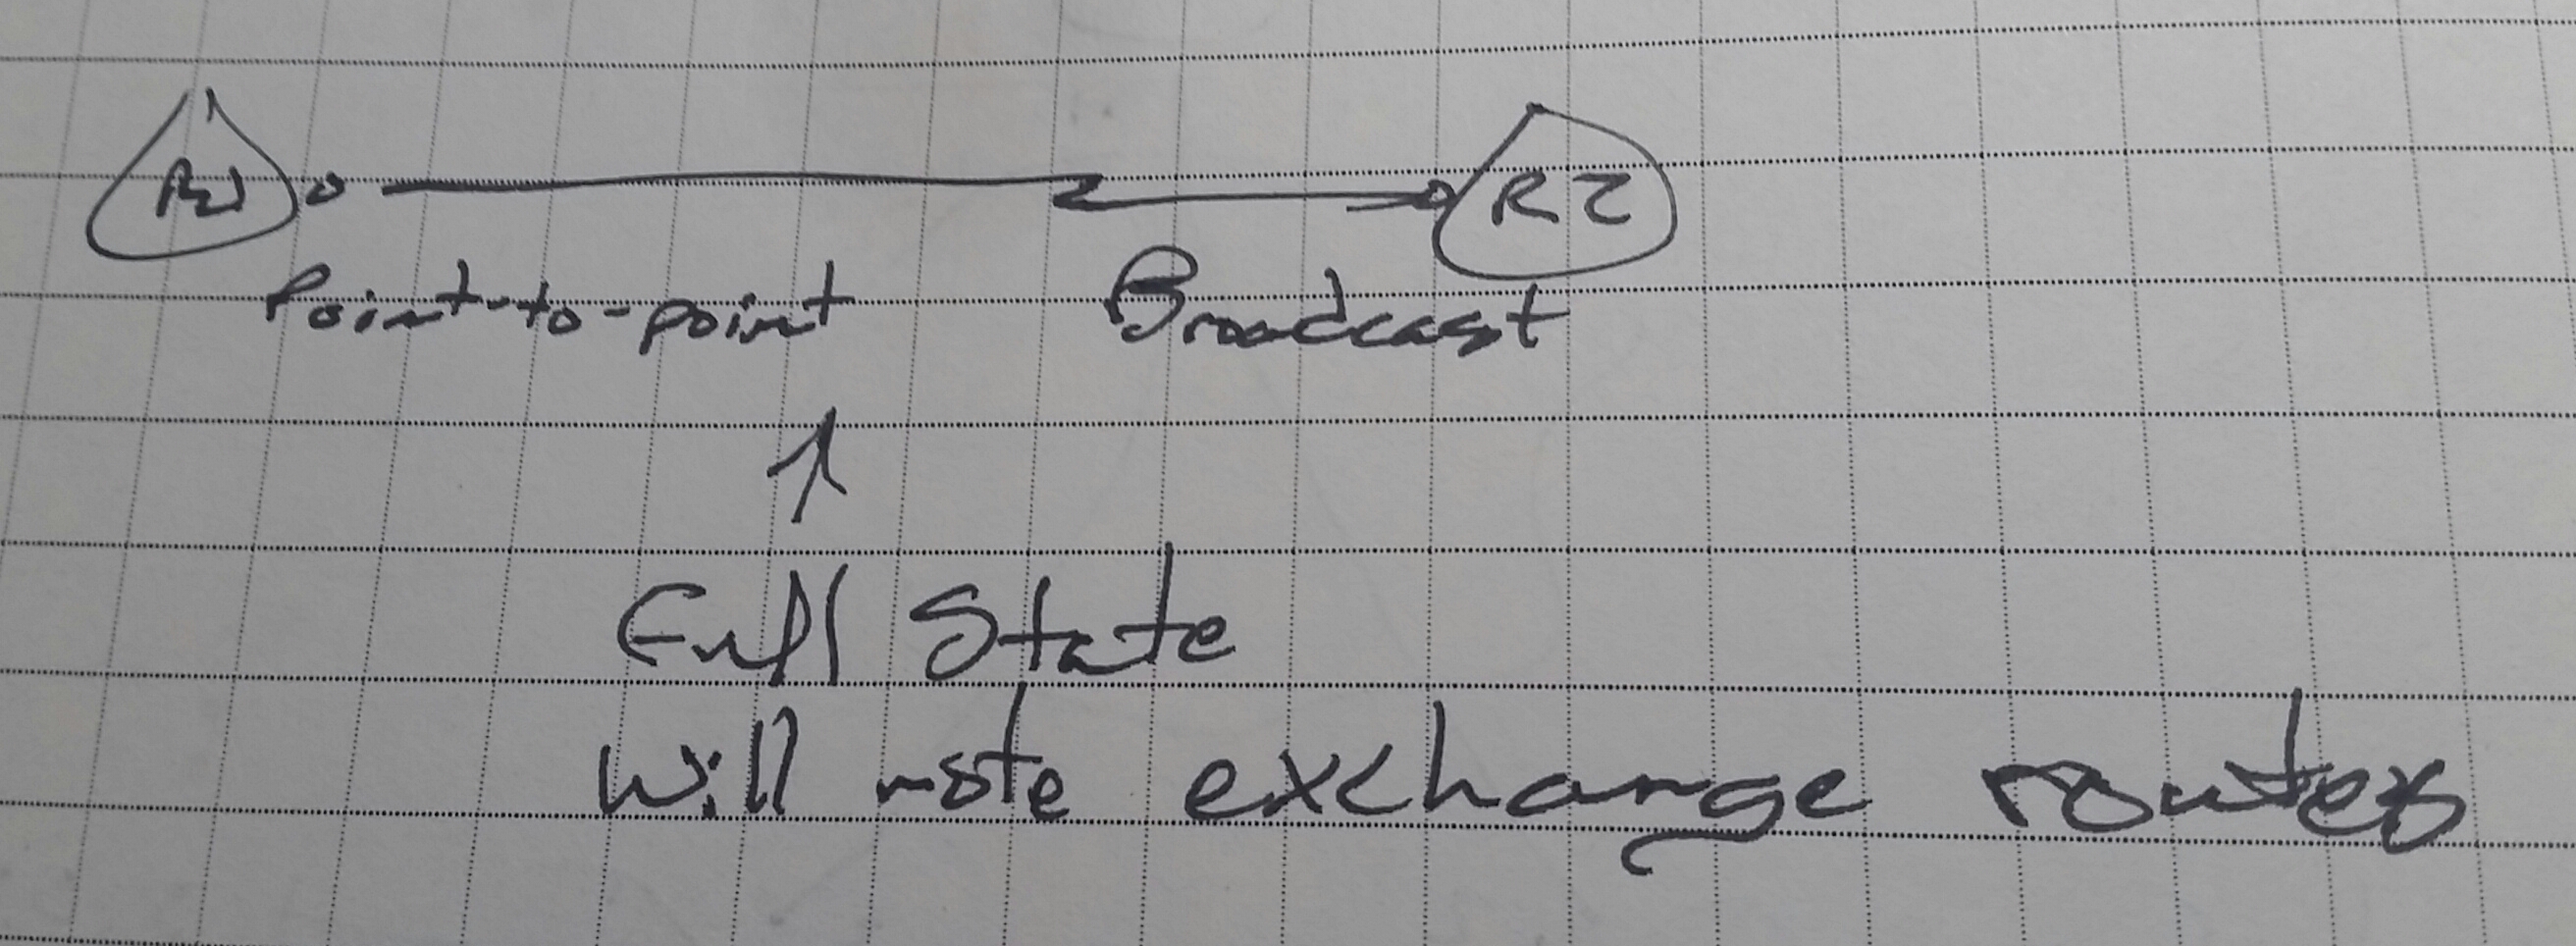 R1 R2
Point-to-point Broadcast
Full State
Will note exchange routes